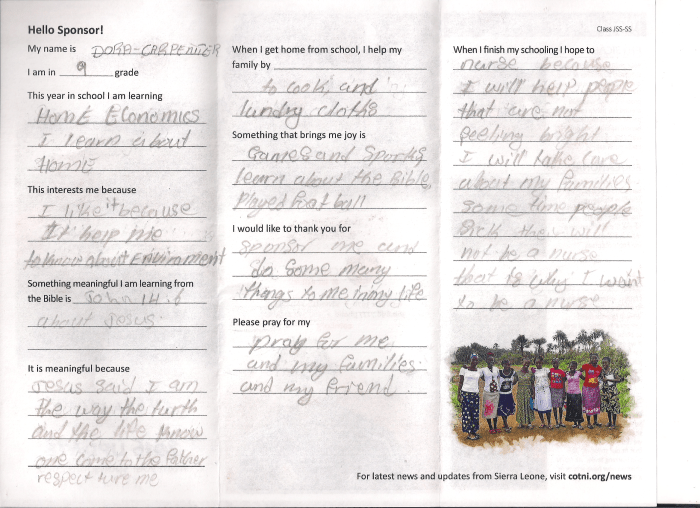 Hello Sponsor!
My name is DORA-CARPENTER
I am in 9 grade
This year in school I am learning
HOME ECONOMICS
I learn about
HOME
This interests me because
I like it because
It help me
to know about Enviroment
Something meaningful I am learning from
the Bible is John 14.6
about Jesus.
It is meaningful because
Jesus said I am
the way the turth
and the life know
one come to the Father
respect ture me
When I get home from school, I help my
family by
to cook, and
lundry cloths
Something that brings me joy is
Games and Sports
learn about the Bible,
Played foot ball
I would like to thank you for
sponsor me and
do some many
things to me in my life
Please pray for my
pray for me
and my families.
and my friend.
Class JSS-SS
When I finish my schooling I hope to
nurse because
I will help people
that are not
feeling bright
I will take care
about my families
some time people
sick they will
not be a nurse
that is why I want
to be a nurse
For latest news and updates from Sierra Leone, visit cotni.org/news